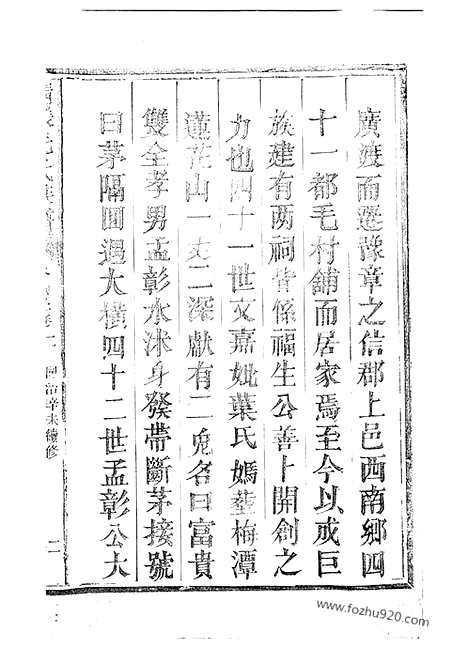 廣渡而遷豫章之信郡上邑西南鄉四
十一都毛村鋪而居家焉至今以成巨
族建有兩祠皆係福生公善卜開創之
力也四十一世文嘉妣葉氏媽塟梅潭
蓮花山一丈二深獻有二兎名曰富貴
雙全孝男孟彰水沐身發帶斷茅接號
曰茅隔圓過大橫四十二世孟彰公大
同治辛未續修
二
www.fozhu920.com